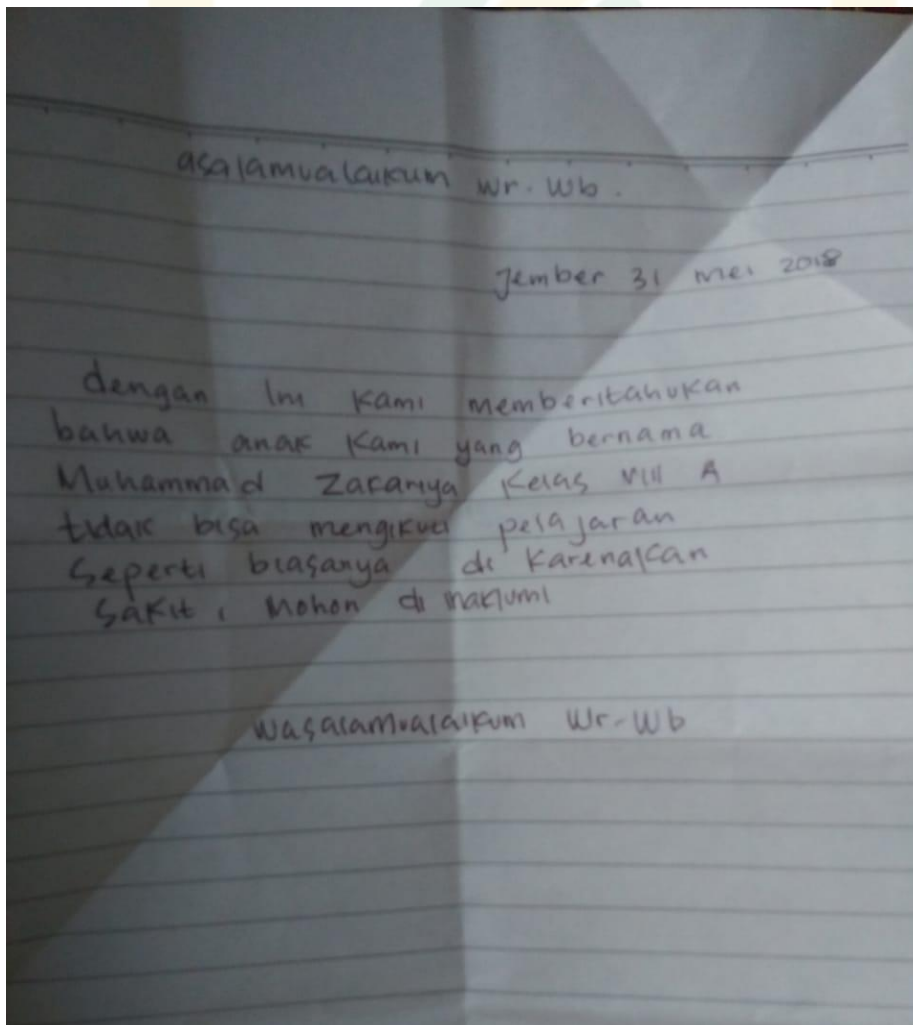 asalamualaikum wr. wb.
Jember 31 mei 2018
dengan ini kami memberitahukan
bahwa anak kami yang bernama
Muhammad Zacariya kelas VIII A
tidak bisa mengikuti pelajaran
seperti biasanya di karenakan
sakit, Mohon di maklumi
wasalamualaikum wr-wb